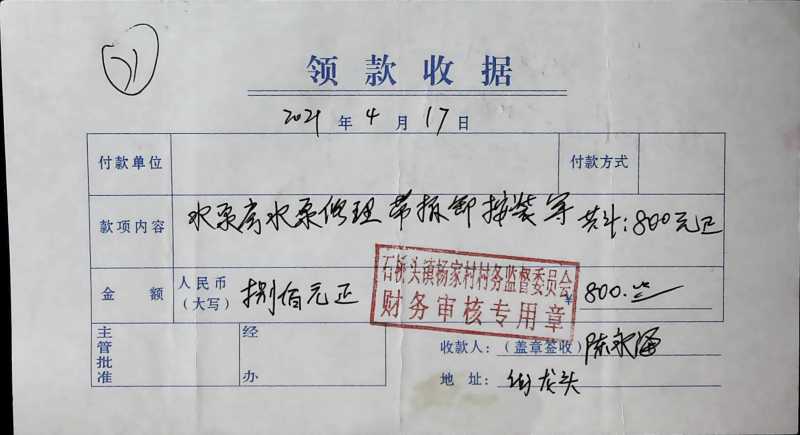 31
领款收据
2021年4月17日
付款单位
付款方式
款项内容 水泵房水泵修理 带拆卸按装等 共计:800元正
金额 人民币(大写) 捌佰元正 ¥ 800.
石桥头镇杨家村村务监督委员会
财务审核专用章
主管批准 经办
收款人:(盖章签收) 陈永海
地址: 街龙头